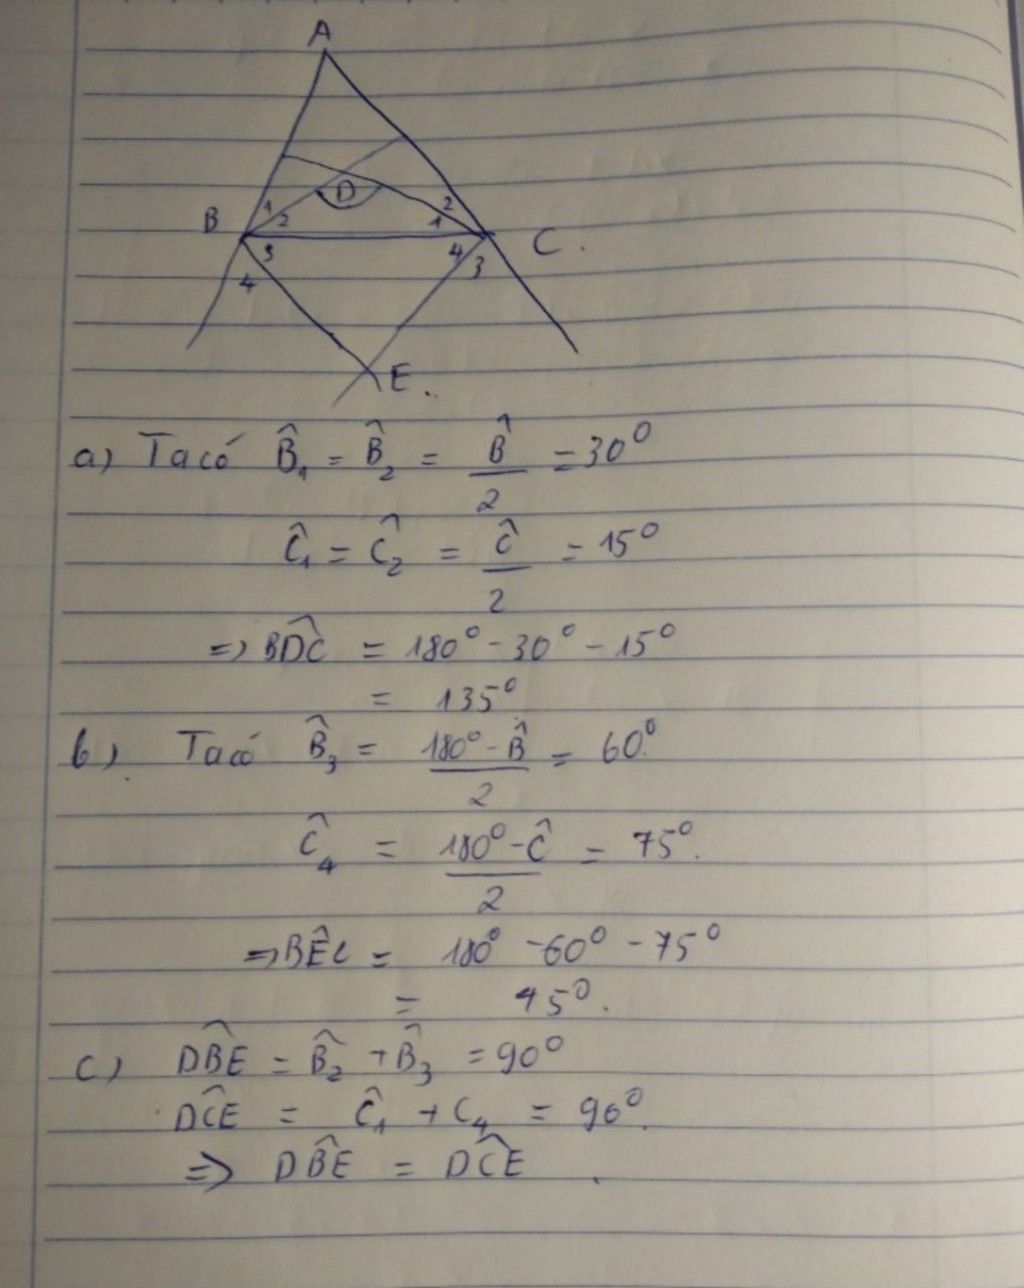 A
D
B 1 2 1 2 C.
3 4 4 3
E.
a) Ta có B̂₁ = B̂₂ = B̂/2 = 30⁰
Ĉ₁ = Ĉ₂ = Ĉ/2 = 15⁰
=> BD̂C = 180⁰ - 30⁰ - 15⁰
= 135⁰
b) Ta có B̂₃ = (180⁰ - B̂)/2 = 60⁰.
Ĉ₄ = (180⁰ - Ĉ)/2 = 75⁰.
=> BÊC = 180⁰ - 60⁰ - 75⁰
= 45⁰.
c) DB̂E = B̂₂ + B̂₃ = 90⁰
DĈE = Ĉ₁ + C₄ = 90⁰.
=> DB̂E = DĈE.